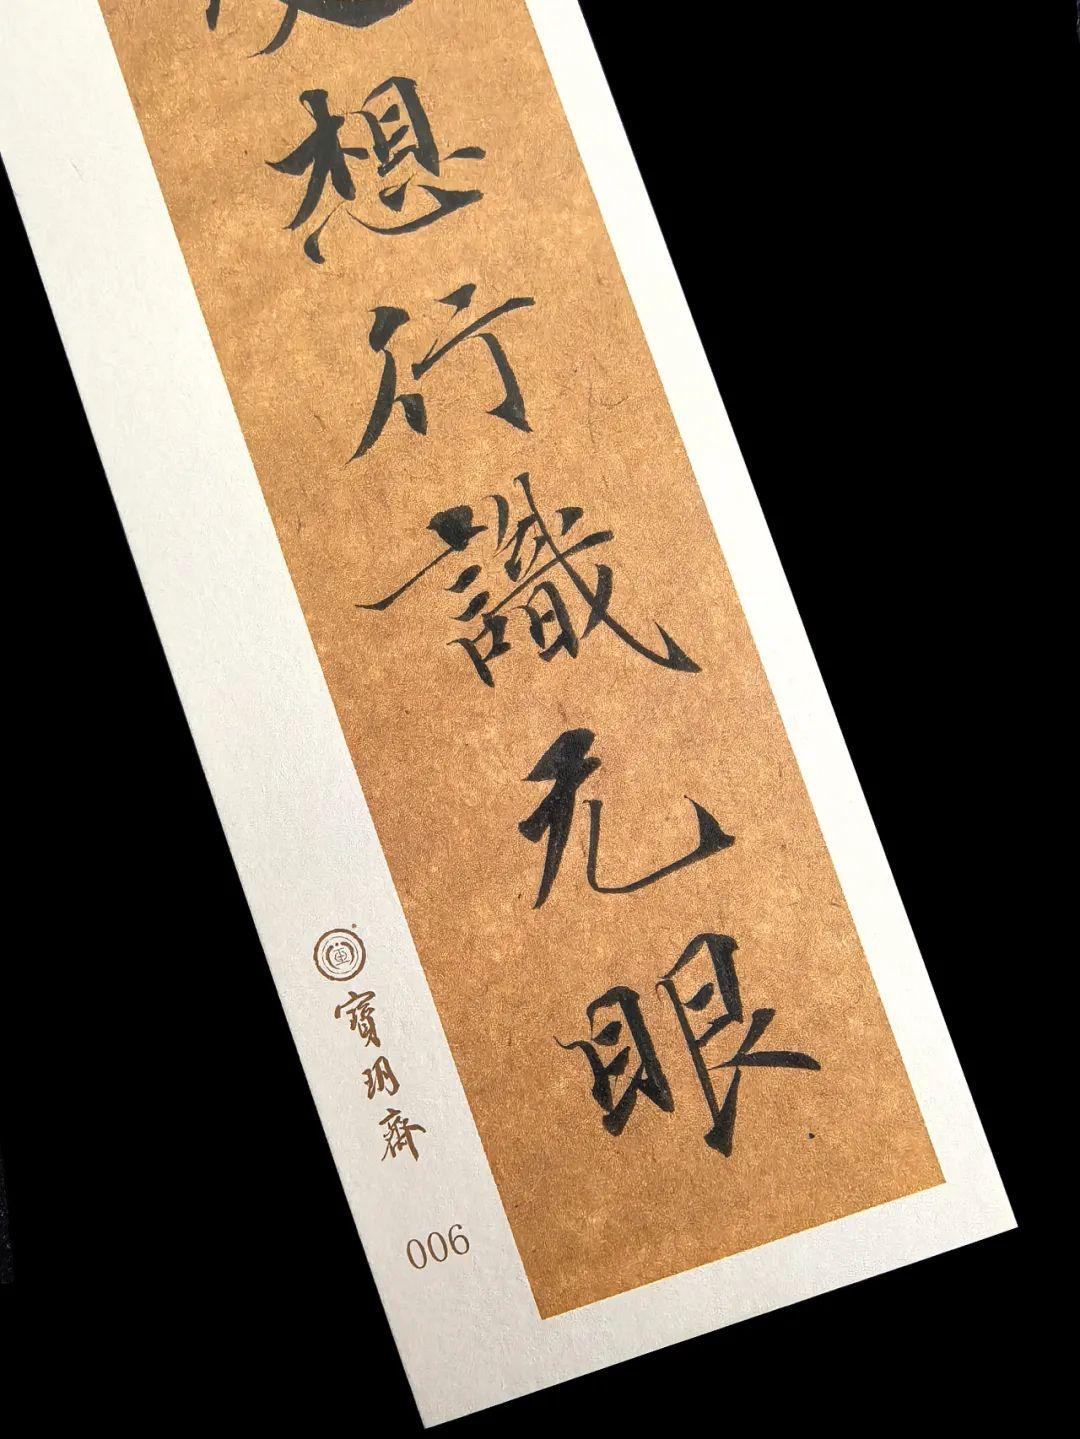 想行識无眼
寶玥齋
006